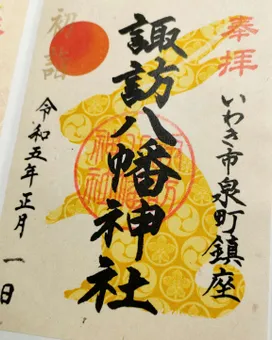 奉拝
いわき市泉町鎮座
諏訪八幡神社
初詣
令和五年正月一日